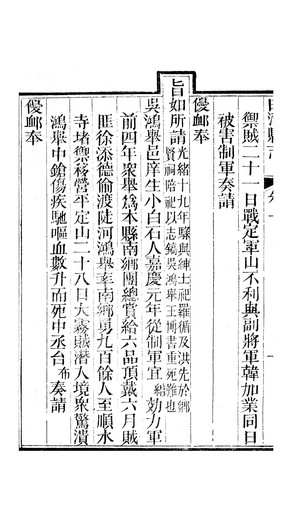 禦賊二十一日戰定軍山不利與副將軍韓加業同日
被害制軍奏請
優䘏奉
旨如所請光緒十九年縣與紳士祀羅循及洪先於鄉
賢祠陪祀以志鏡吳鴻舉王博書重死難也
吳鴻舉邑庠生小白石人嘉慶元年從制軍宜緜効力軍
前四年衆舉爲本縣南鄉團總賞給六品頂戴六月賊
匪徐添德偷渡陡河鴻舉率南鄉勇九百餘人至順水
寺堵禦移營平定山二十八日大霧賊潛入境衆驚潰
鴻舉中鎗傷疾馳嘔血數升而死中丞台布奏請
優䘏奉